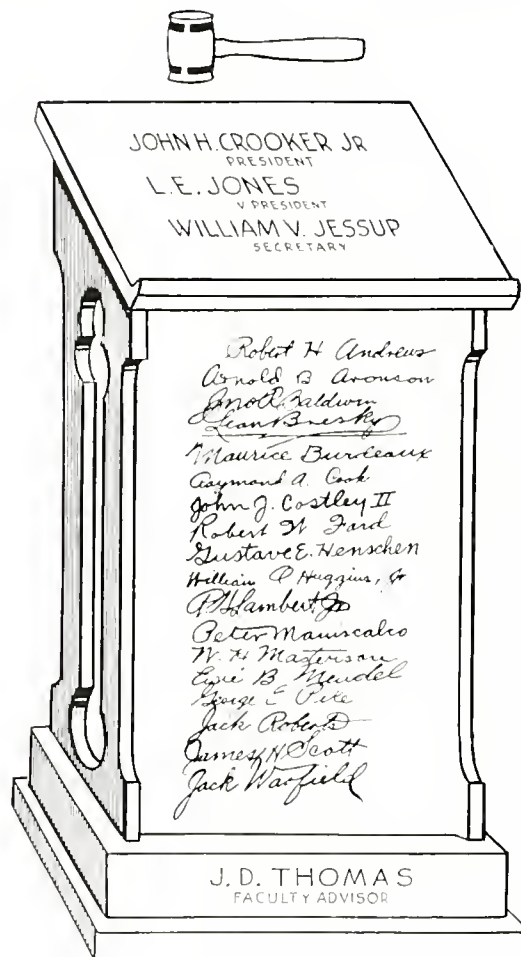 JOHN H. CROOKER JR
PRESIDENT
L.E. JONES
V PRESIDENT
WILLIAM V. JESSUP
SECRETARY
Robert H Andrews
Arnold B Aronson
Baldwin
Leon Bresky
Maurice Burdeaux
Raymond A. Cook
John J. Costley II
Robert W Ford
Gustave E. Henschen
William P Huggins, Jr
Lambert Jr
Peter Maniscalco
W. H Masterson
B Mendel
George E Pike
Jack Roberts
James H. Scott
Jack Warfield
J. D. THOMAS
FACULTY ADVISOR